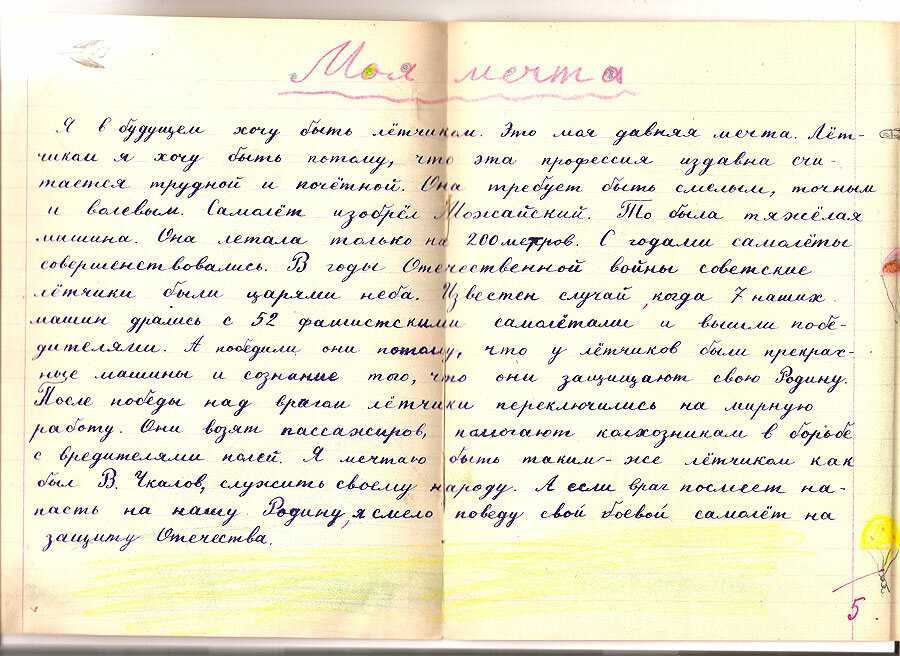 Моя мечта
Я в будущем хочу быть лётчиком. Это моя давняя мечта. Лёт-
чиком я хочу быть потому, что эта профессия издавна счи-
тается трудной и почётной. Она требует быть смелым, точным
и волевым. Самолёт изобрёл Можайский. То была тяжёлая
машина. Она летала только на 200 метров. С годами самолёты
совершенствовались. В годы Отечественной войны советские
лётчики были царями неба. Известен случай, когда 7 наших
машин дрались с 52 фашистскими самолётами и вышли побе-
дителями. А победили они потому, что у лётчиков были прекрас-
ные машины и сознание того, что они защищают свою Родину.
После победы над врагом лётчики переключились на мирную
работу. Они возят пассажиров, помогают колхозникам в борьбе
с вредителями полей. Я мечтаю быть таким-же лётчиком как
был В. Чкалов, служить своему народу. А если враг посмеет на-
пасть на нашу Родину, я смело поведу свой боевой самолёт на
защиту Отечества.
5